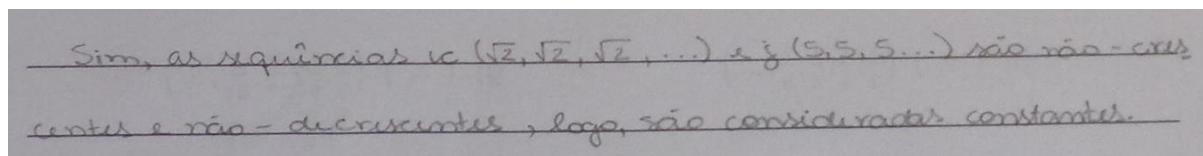 Sim, as sequências k (√2, √2, √2, ...) e j (5, 5, 5...) são não-cres
centes e não-decrescentes, logo, são consideradas constantes.